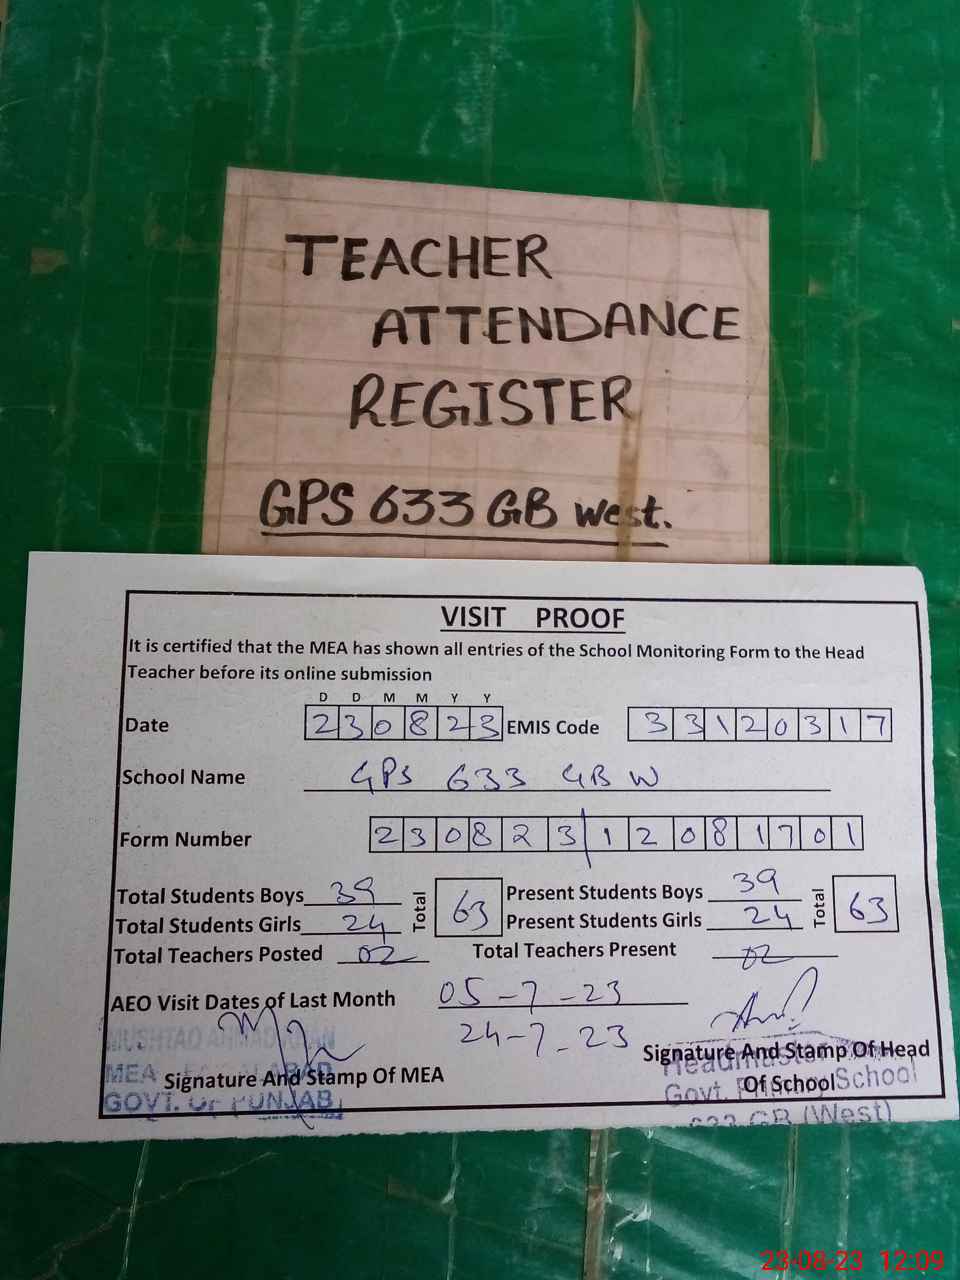 TEACHER
ATTENDANCE
REGISTER
GPS 633 GB west.
VISIT PROOF
It is certified that the MEA has shown all entries of the School Monitoring Form to the Head
Teacher before its online submission
D D M M Y Y
Date 230823 EMIS Code 33120317
School Name GPS 633 GB W
Form Number 23082312081701
Total Students Boys 39 Total 63 Present Students Boys 39 Total 63
Total Students Girls 24 Present Students Girls 24
Total Teachers Posted 02 Total Teachers Present 02
AEO Visit Dates of Last Month 05-7-23
24-7-23
MUSHTAQ AHMAD
MEA
Signature And Stamp Of MEA
GOVT. OF PUNJAB
Signature And Stamp Of Head
Of School
Headmaster
Govt. Primary School
633 GB (West)
23-08-23 12:09